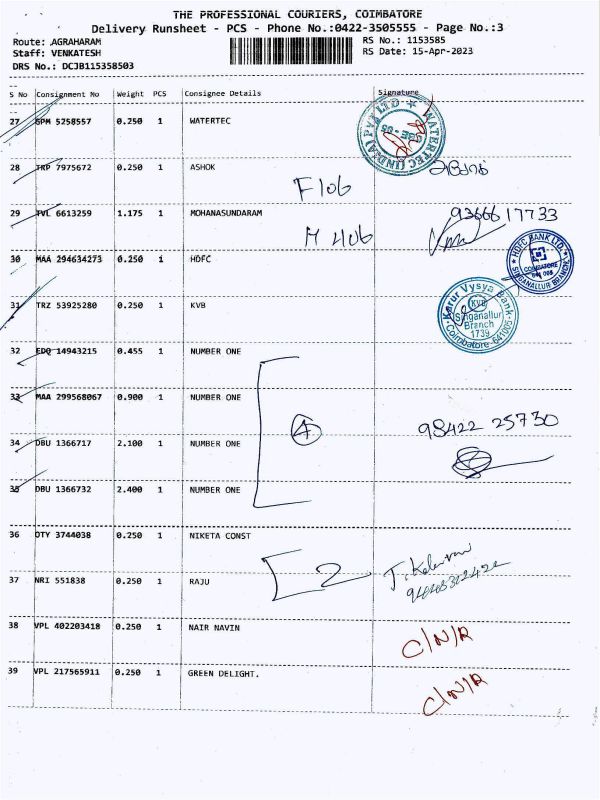 THE PROFESSIONAL COURIERS, COIMBATORE
Delivery Runsheet - PCS - Phone No.:0422-3505555 - Page No.:3
Route: .AGRAHARAM RS No.: 1153585
Staff: VENKATESH RS Date: 15-Apr-2023
DRS No.: DCJB115358503
S No Consignment No Weight PCS Consignee Details Signature
27 GPM 5258557 0.250 1 WATERTEC
WATERTEC (INDIA) PVT LTD
28 TRP 7975672 0.250 1 ASHOK
F106
29 TVL 6613259 1.175 1 MOHANASUNDARAM 9366617733
M 406
30 MAA 294634273 0.250 1 HDFC
HDFC BANK LTD. COIMBATORE 641 005 SINGANALLUR BRANCH
31 TRZ 53925280 0.250 1 KVB
Karur Vysya Bank KVB Singanallur Branch 1739 Coimbatore-641005
32 EDQ 14943215 0.455 1 NUMBER ONE
33 MAA 299568067 0.900 1 NUMBER ONE
4 98422 25730
34 DBU 1366717 2.100 1 NUMBER ONE
35 DBU 1366732 2.400 1 NUMBER ONE
36 OTY 3744038 0.250 1 NIKETA CONST
2
37 NRI 551838 0.250 1 RAJU
38 VPL 402203418 0.250 1 NAIR NAVIN C/N/R
39 VPL 217565911 0.250 1 GREEN DELIGHT. C/N/R